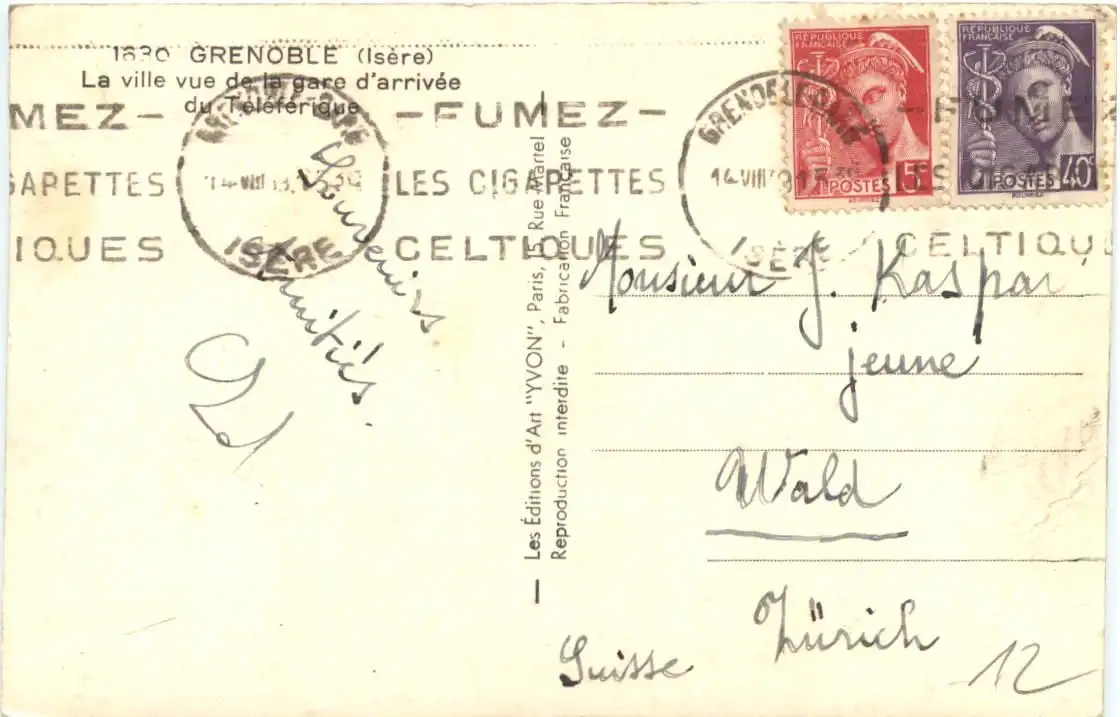 1630 GRENOBLE (Isère)
La ville vue de la gare d'arrivée
du Téléférique
MEZ -
GARETTES
IQUES
GRENOBLE GARE
ISÈRE
- FUMEZ -
LES CIGARETTES
CELTIQUES
GRENOBLE GARE
14 VIII 39
ISÈRE
- FUMEZ
LES CI
CELTIQU
RÉPUBLIQUE
FRANÇAISE
5c
POSTES
RÉPUBLIQUE
FRANÇAISE
POSTES 40c
Souvenirs.
Amitiés.
Les Éditions d'Art "YVON", Paris, 15, Rue Martel
Reproduction interdite - Fabrication Française
Monsieur J. Kaspar
jeune
Wald
Zürich
Suisse
12